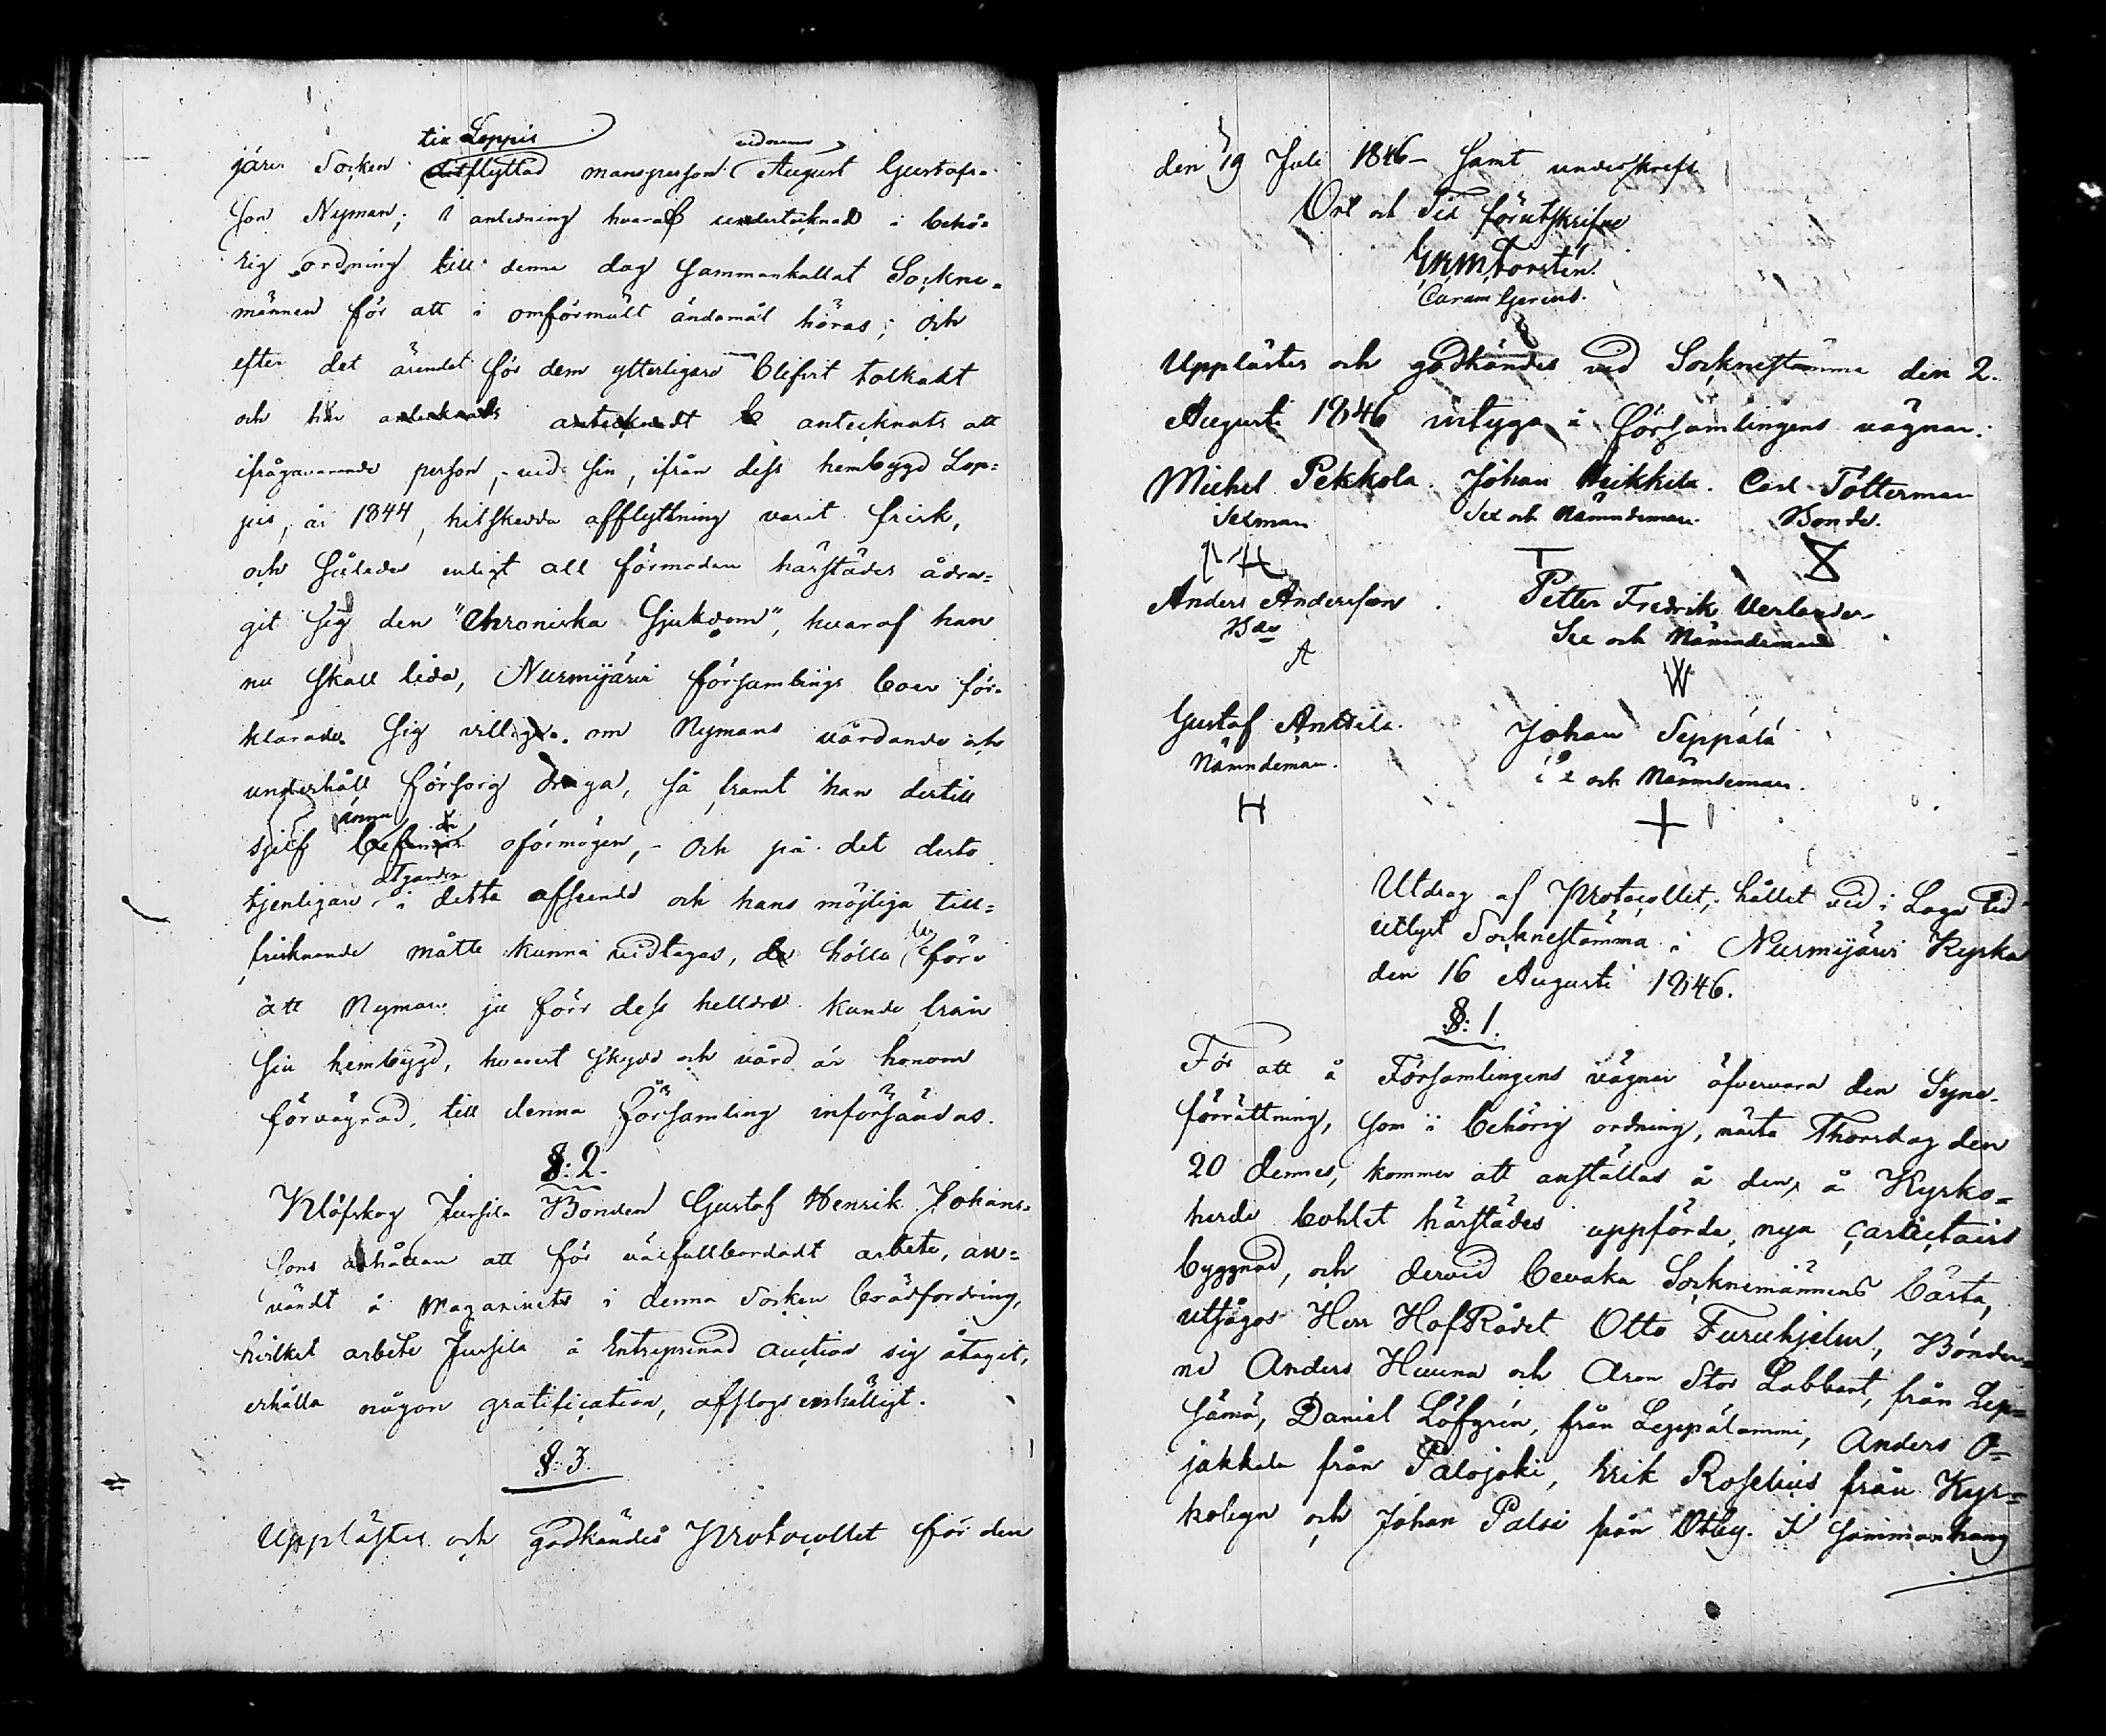 till Leppis
järvi Socken flyttad mansperson August Gustafs-
son Nyman; i anledning hvaraf undertecknad i behö-
rig ordning till denna dag sammankallat Sockne-
männen för att i omförmält ändamål höras; Och
efter det ärendet för dem ytterligare blifvit tolkadt
och här antecknats att
ifrågavarande person, vid sin, ifrån dess hembygd Lop-
pis, år 1844, hitskedda afflyttning varit frisk,
och således enligt all förmodan härstädes ådra-
git sig den "Chroniska Sjukdom", hvaraf han
nu skall lida, Nurmijärvi församlings boer för-
klarade sig villige om Nymans vårdande och
underhåll försorg draga, så framt han dertill
sjelf oförmögen, - Och på det desto
åtgärder
tjenligare i detta afseende och hans möjliga till-
frisknande måtte kunna vidtagas, hölla före
att Nyman ju förr dess helldre kunde från
sin hembygd, hvarest skydd och vård är honom
förvägrad, till denna Församling införsändas.
§: 2.
Klåfskog Jussila Bonden Gustaf Henrik Johans-
sons anhållan att för välfullbordadt arbete, an-
vändt å Magazinets i denna Socken brädfordring,
hvilket arbete Jussila å Entreprenad auction sig åtagit,
erhålla någon gratification, afslogs enhälligt.
§: 3.
Upplästes och godkändes Protocollet för den
den 19 Juli 1846 - samt underskrefs.
Ort och Tid förutskrifne
Forstén
Curam Gerens.
Upplästes och godkändes vid Socknestämma den 2.
Augusti 1846 intyga å församlingens vägnar:
Michel Pekkola. Johan Heikkilä. Carl Tötterman
Sexman Sex och Nämndeman. Bonde.
Anders Andersson. Petter Fredrik Verlander
Sex och Nämndeman
A W
Gustaf Anttila. Johan Seppälä
Nämndeman. och Nämndeman.
H +
Utdrag af Protocollet, hållet vid i Laga tid
utlyst Socknestämma i Nurmijärvi Kyrka
den 16 Augusti 1846.
§: 1.
För att å Församlingens vägnar öfvervara den Syne-
förrättning, som i behörig ordning, nästa Thorsdag den
20 dennes, kommer att anställas å den, å Kyrko-
herde bohlet härstädes uppförda, nya
byggnad, och dervid bevaka Socknemännens bästa,
utsågos Herr HofRådet Otto Furuhjelm, Bönder-
ne Anders Huuna och Aron Stor Labbart, från Lep-
sämä, Daniel Löfgrén, från Leppälammi, Anders O-
jakkala från Palojoki, Erik Roselius från Kyr-
kobyn och Johan Paloi från Otby. I sammanhang